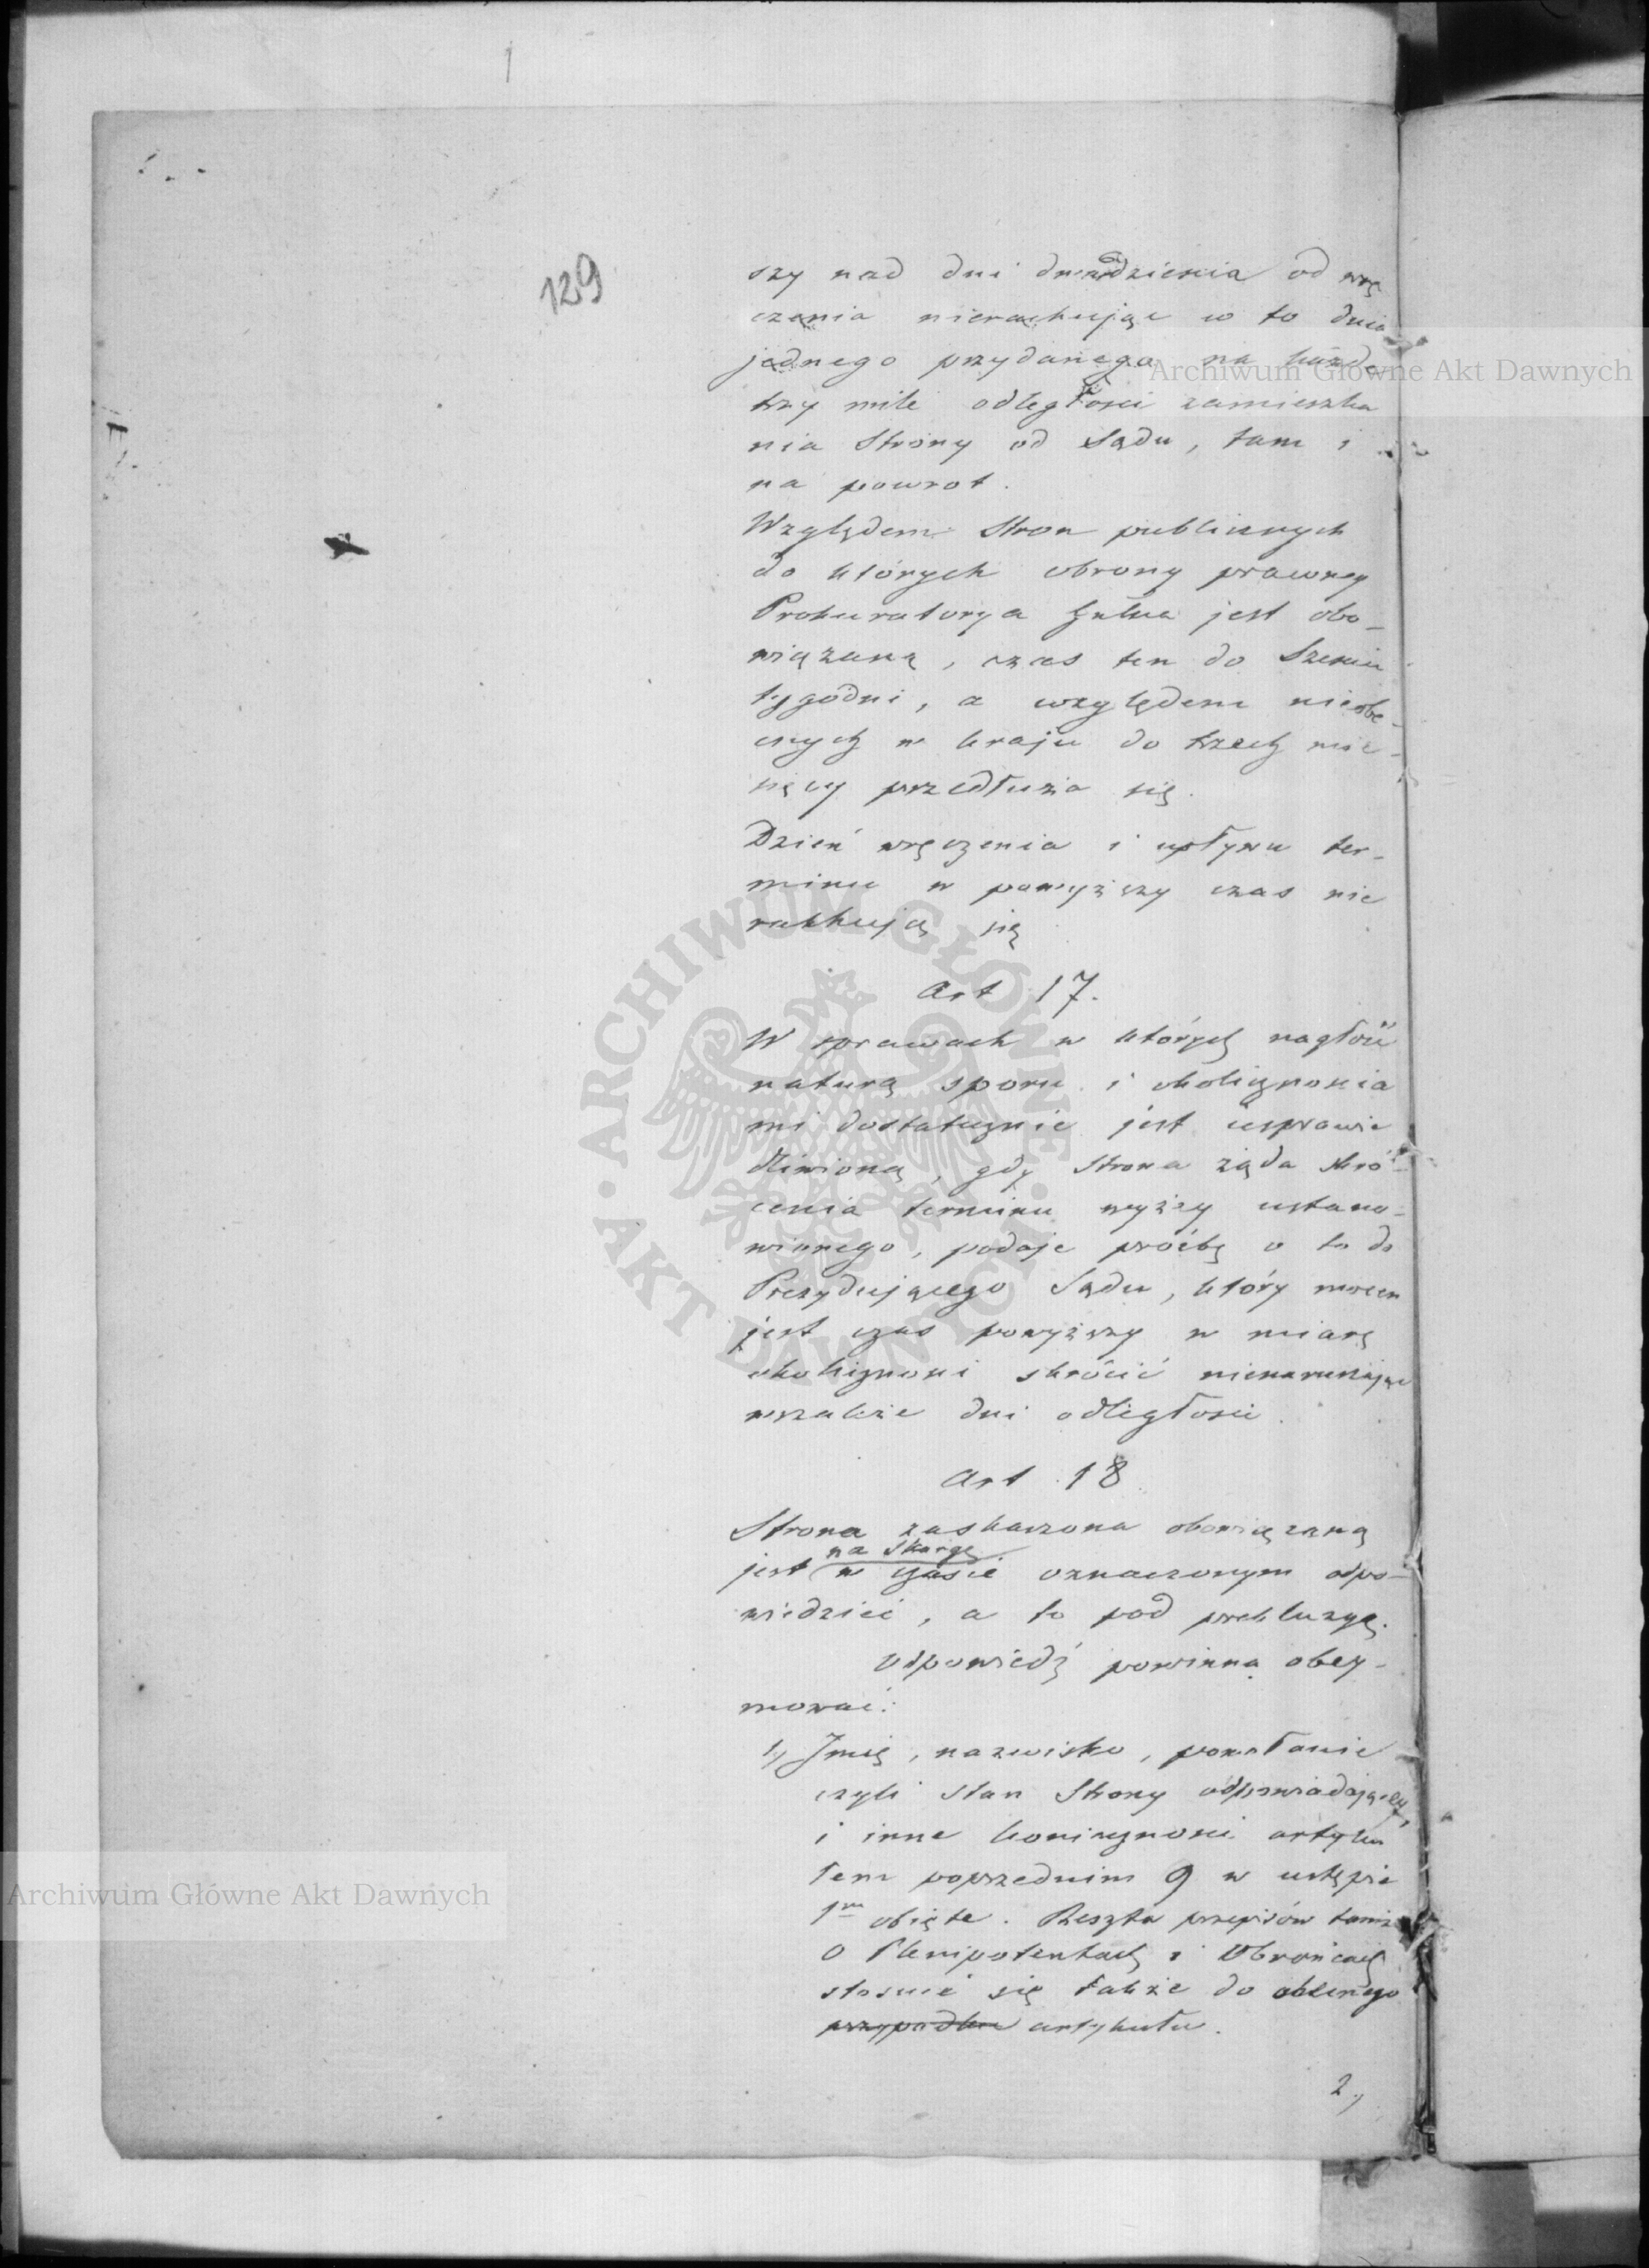 129
szy nad dni dwadzieścia od wrę
czenia nierachując w to dnia
jednego przydanego na każde
trzy mile odległości zamieszka
nia Strony od Sądu, tam i
na powrot.
Względem Stron publicznych
do których obrony prawney
Prokuratorya jest obo-
wiązaną, czas ten do Sześciu
tygodni, a względem nieobe-
cnych w kraju do trzech mie-
sięcy przedłuża się.
Dzień wręczenia i upływu ter-
minu w powyższy czas nie
rachują się
Art 17.
W sprawach w których nagłość
naturą sporu i okolicznościa
mi dostatecznie jest usprawie
dliwioną, gdy Strona żąda skró-
cenia terminu wyżey ustano-
wionego, podaje prośbę o to do
Prezydującego Sądu, który mocen
jest czas powyższy w miarę
okoliczności skrócić nienaruszając
wszakże dni odległości.
Art. 18
Strona zaskarzona obowiązaną
na Skargę
jest w czasie oznaczonym odpo-
wiedzieć, a to pod prekluzyą.
Odpowiedź powinna obey-
mować:
1, Imię, nazwisko, powołanie
czyli stan Strony odpowiadającey,
i inne koniczności artyku
łem poprzednim 9 w ustępie
1m obięte. Reszta przepisów tamże
o Plenipotentach i Obrońcach
stosuie się także do obecnego
przypadku artykułu.
2,
Archiwum Główne Akt Dawnych
Archiwum Główne Akt Dawnych
ARCHIWUM GŁÓWNE · AKT DAWNYCH ·